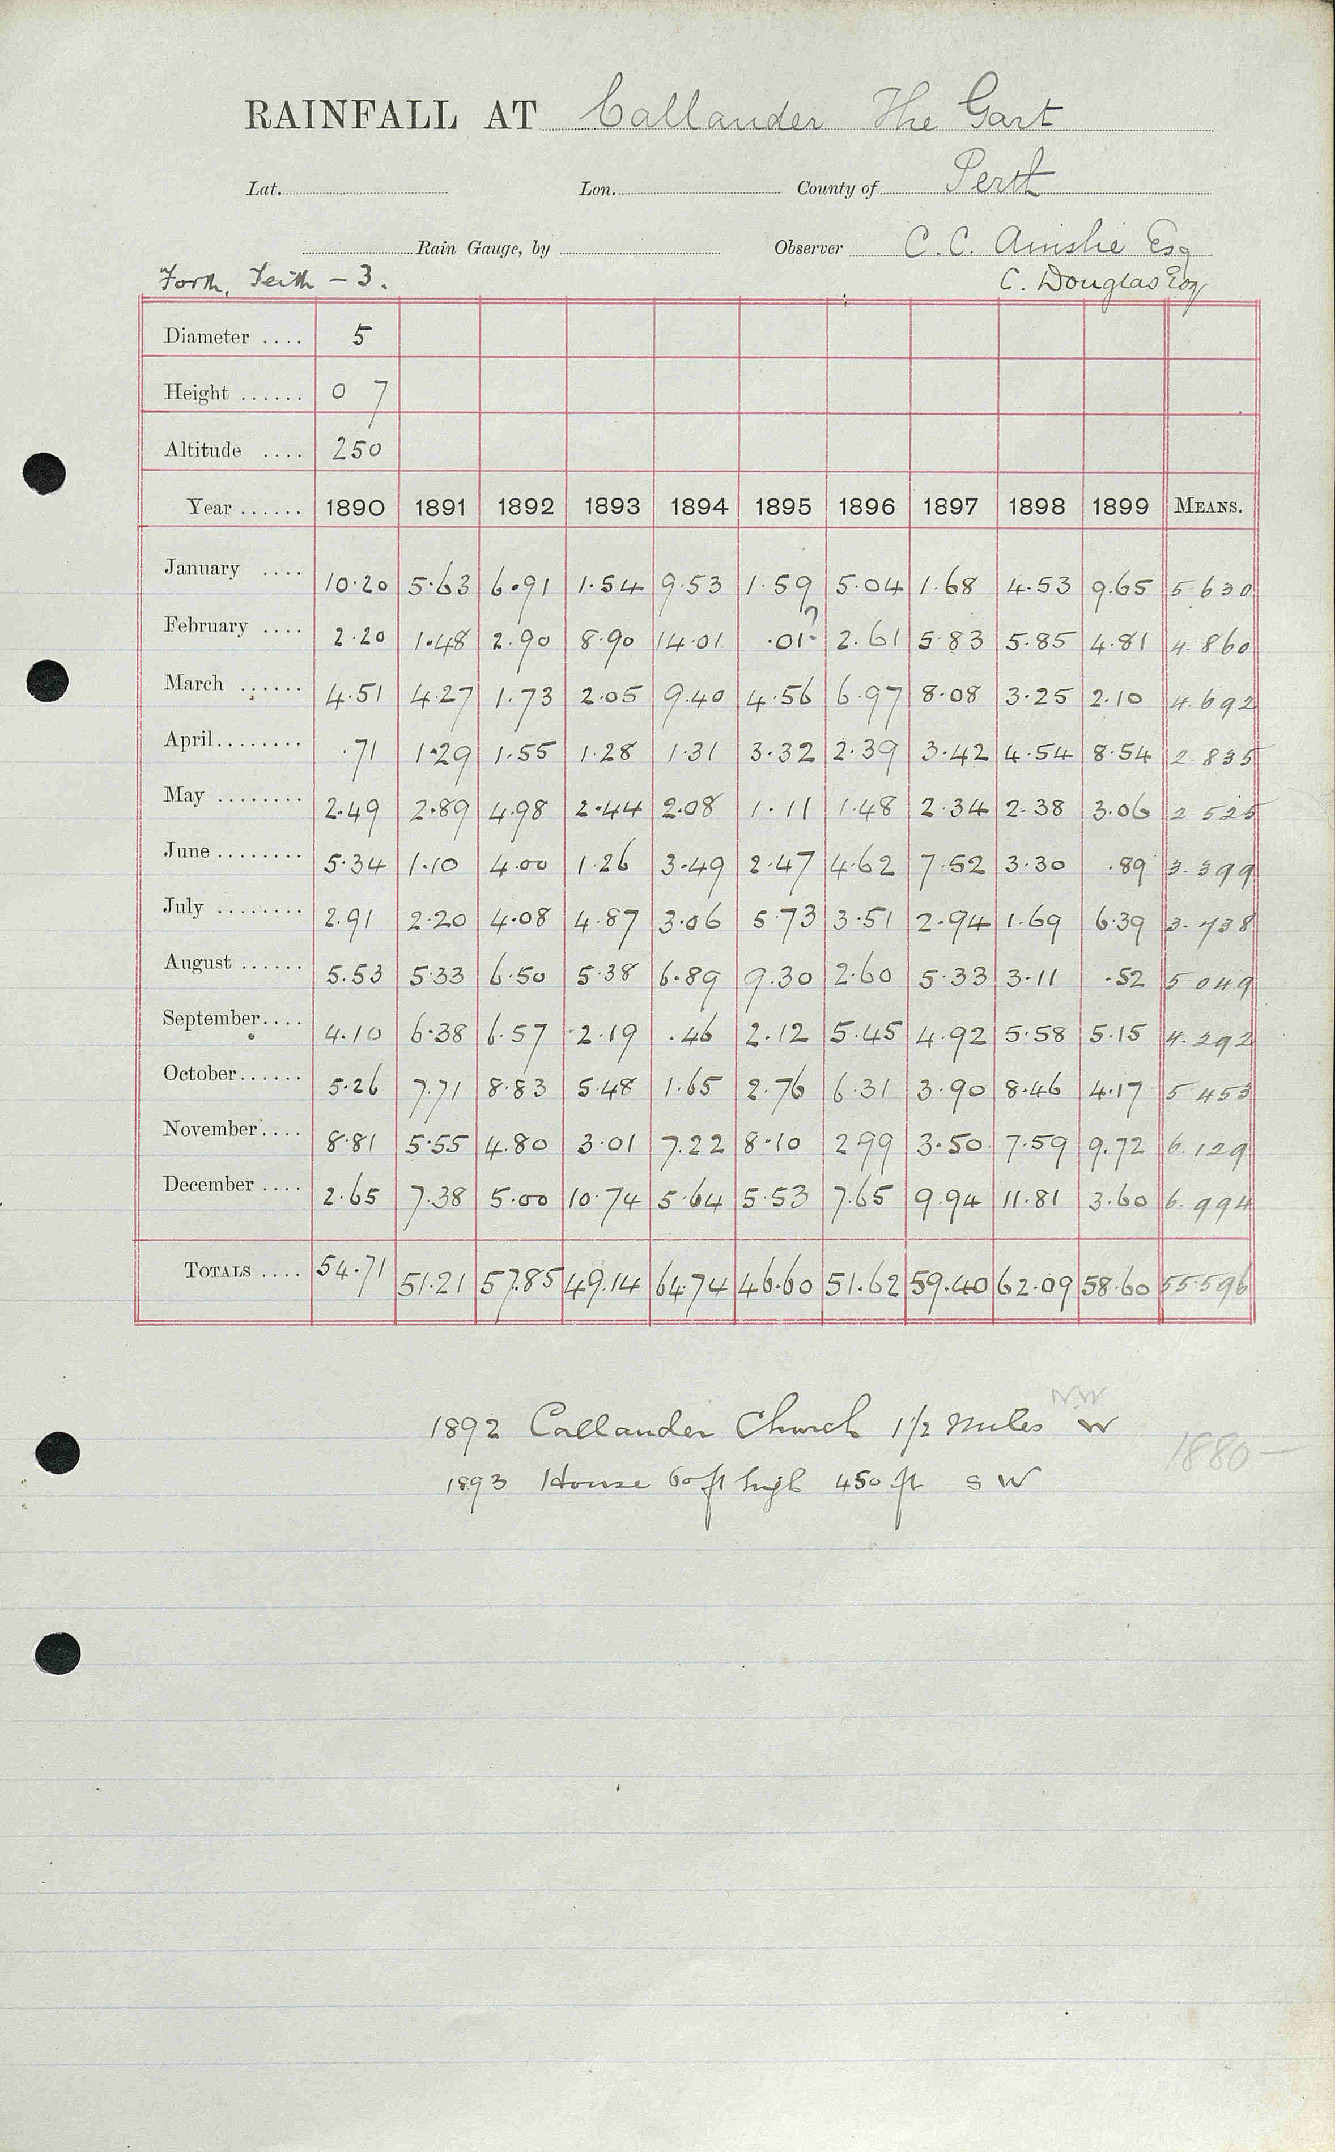 RAINFALL AT Callander The Gart
Lat. Lon. County of Perth
Rain Gauge, by Observer C. C. Ainslie Esq
Forth, Teith - 3. C. Douglas Esq
Diameter .... 5
Height ...... 0 7
Altitude .... 250
Year ...... 1890 1891 1892 1893 1894 1895 1896 1897 1898 1899 MEANS.
January .... 10.20 5.63 6.91 1.54 9.53 1.59 5.04 1.68 4.53 9.65 5.630
February .... 2.20 1.48 2.90 8.90 14.01 .01? 2.61 5.83 5.85 4.81 4.860
March ...... 4.51 4.27 1.73 2.05 9.40 4.56 6.97 8.08 3.25 2.10 4.692
April........ .71 1.29 1.55 1.28 1.31 3.32 2.39 3.42 4.54 8.54 2.835
May ........ 2.49 2.89 4.98 2.44 2.08 1.11 1.48 2.34 2.38 3.06 2.525
June ........ 5.34 1.10 4.00 1.26 3.49 2.47 4.62 7.52 3.30 .89 3.399
July ........ 2.91 2.20 4.08 4.87 3.06 5.73 3.51 2.94 1.69 6.39 3.738
August ...... 5.53 5.33 6.50 5.38 6.89 9.30 2.60 5.33 3.11 .52 5.049
September.... 4.10 6.38 6.57 2.19 .46 2.12 5.45 4.92 5.58 5.15 4.292
October...... 5.26 7.71 8.83 5.48 1.65 2.76 6.31 3.90 8.46 4.17 5.453
November.... 8.81 5.55 4.80 3.01 7.22 8.10 2.99 3.50 7.59 9.72 6.129
December .... 2.65 7.38 5.00 10.74 5.64 5.53 7.65 9.94 11.81 3.60 6.994
TOTALS .... 54.71 51.21 57.85 49.14 64.74 46.60 51.62 59.40 62.09 58.60 55.596
NW
1892 Callander Church 1 1/2 miles W
1880-
1893 House 60 ft high 450 ft S W